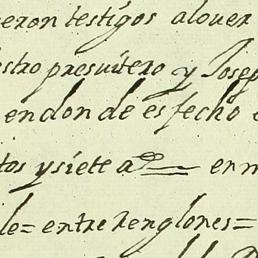 eron testigos alover
estro presvitero y Josep
endon de es fecho
tos y siete a
le = entre Renglones =